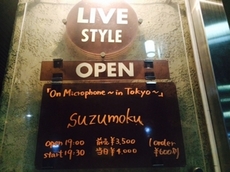 LIVE
STYLE
OPEN
「On Microphone ~in Tokyo~」
suzumoku
open 19:00 前売 ¥3,500
start 19:30 当日 ¥4,000
1 order
¥600